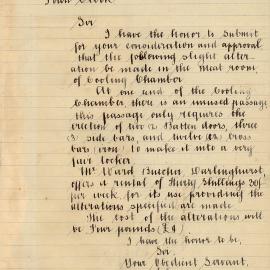 Town Clerk
Sir
I have the honor to submit
for your consideration and approval
that the following slight alter-
ation be made in the meat room
of Cooling Chamber
At one end of the Cooling
Chamber there is an unused passage
this passage only requires the
erection of two 2 Batten doors, three
3 side bars, and twelve (12) cross
bars (iron) to make it into a very
fair locker
Mr. Ward Butcher, Darlinghurst,
offers a rental of Thirty Shillings 30/-
per week, for its use providing the
alterations specified are made
The cost of the alterations will
be Four pounds (£4)
I have the honor to be,
Sir,
Your Obedient Servant,